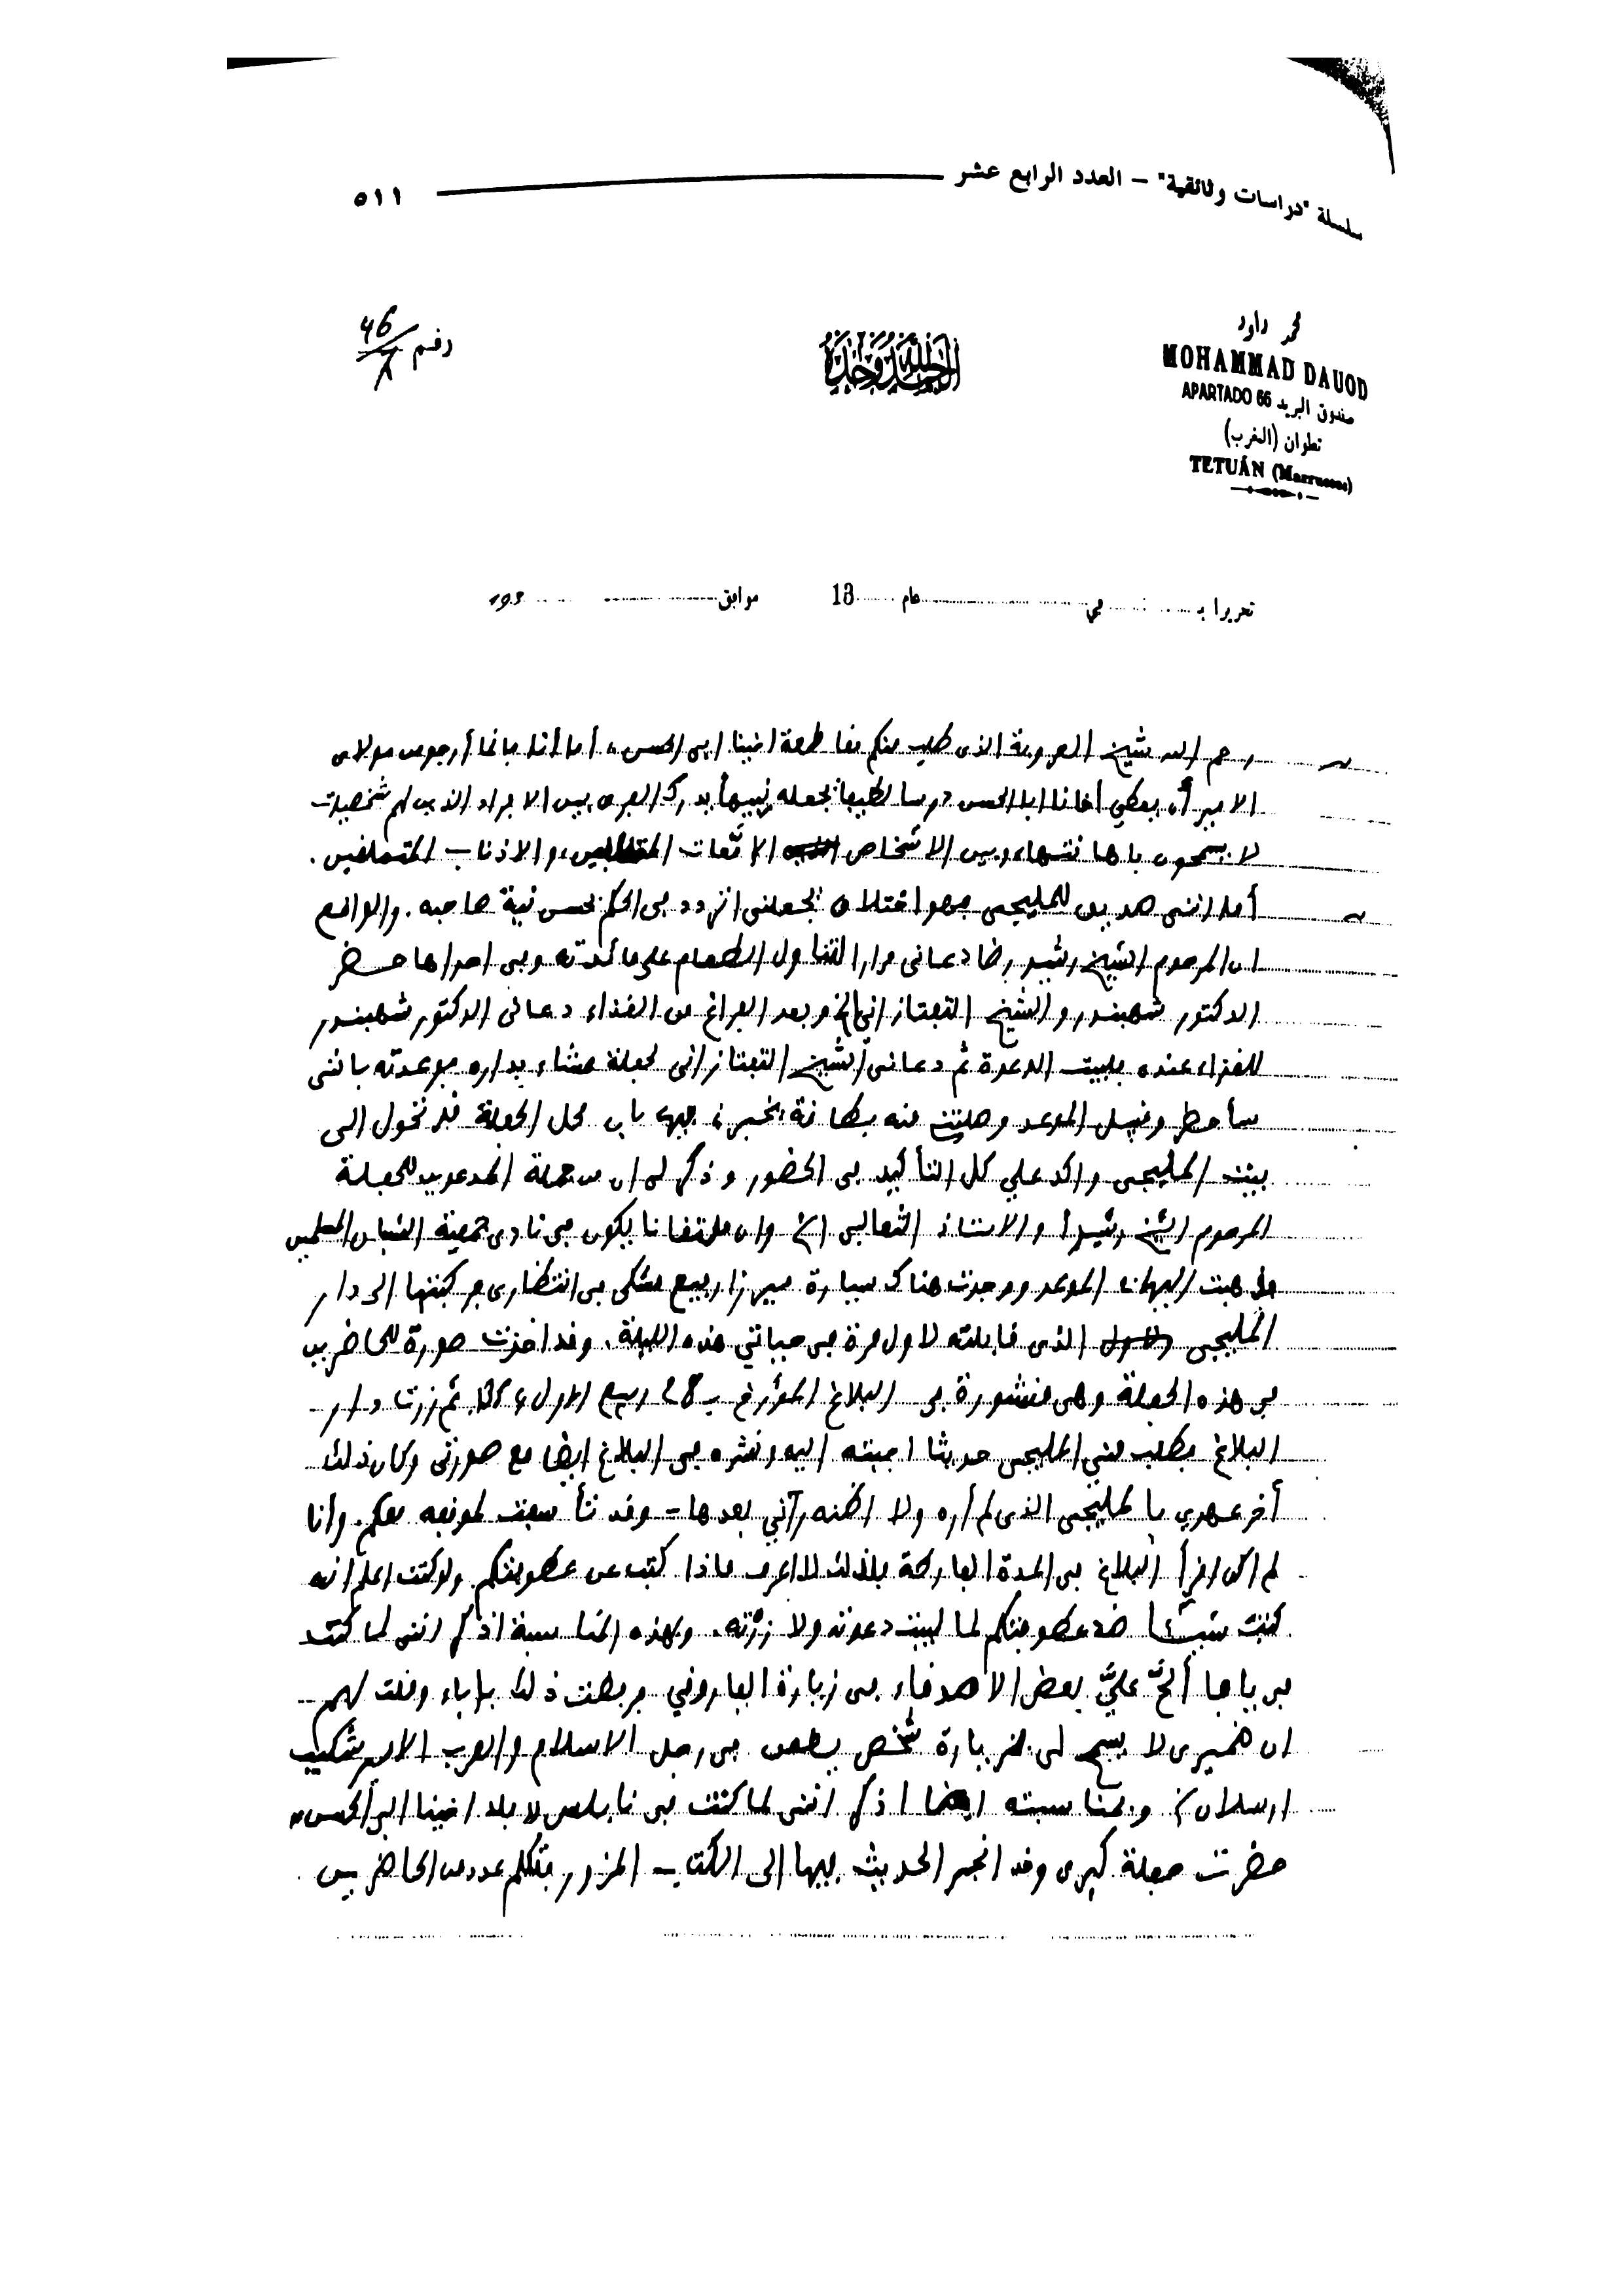 سلسلة "دراسات وثائقية" – العدد الرابع عشر
٥١١
محمد داود
MOHAMMAD DAUOD
APARTADO 66 صندوق البريد
تطوان (المغرب)
TETUÁN (Marruecos)
الحمد لله وحده
رقم 46/8
تحريرا بـ في عام 13 موافق 193
رحم الله شيخ العروبة الذى طلب منكم مقاطعة اخينا ابى الحسن، أما أنا فانما أرجو من مولاى
الامير أن يعطي أخانا ابا الحسن درسا لطيفا يجعله نبيها يدرك الفرق بين الافراد الذين لهم شخصيات
لا يسمحون باهانتها، وبين الاشخاص الإمّعات والاذناب المتملقين.
أما اننى صديق للمليجى فهو اختلاق يجعلنى اتردد فى الحكم بحسن نية صاحبه. والواقع
ان المرحوم الشيخ رشيد رضا دعانى مرارا لتناول الطعام على مائدته وفى احداها حضر
الدكتور شهبندر والشيخ التفتازانى الخ وبعد الفراغ من الغذاء دعانى الدكتور شهبندر
للغذاء عنده فلبيت الدعوة ثم دعانى الشيخ التفتازانى لحفلة عشاء بداره فوعدته باننى
سأحضر وقبل الموعد وصلتني منه بطاقة يخبرني فيها بان محل الحفلة قد تحول الى
بيت المليجى واكد علي كل التأكيد فى الحضور وذكر لى ان من جملة المدعوين للحفلة
المرحوم الشيخ رشيدا والاستاذ الثعالبى الخ وان ملتقانا يكون فى نادى جمعية الشبان المسلمين
فذهبت اليه فى الموعد ووجدت هناك سيارة ميرزا رفيع مشكى فى انتظارى فركبتها الى دار
المليجى الذى قابلته لاول مرة فى حياتي هذه الليلة. وقد اخذت صورة للحاضرين
فى هذه الحفلة وهى منشورة فى البلاغ المؤرخ بـ 28 ربيع الاول ثم زرت دار
البلاغ فطلب مني المليجى حديثا اجبته اليه ونشره فى البلاغ ايضا مع صورتى وكان ذلك
أخر عهدي بالمليجى الذى لم أره ولا اظنه رآني بعدها - وقد تأسفت لموقفه معكم. وأنا
لم اكن اقرأ البلاغ فى المدة الفارطة فلذلك لا اعرف ماذا كتب عن عطوفتكم ولو كنت اعلم انه
كتب شيئا ضد عطوفتكم لما لبيت دعوته ولا زرته. وبهذه المناسبة اذكر اننى لما كنت
فى يافا ألحَّ عليَّ بعض الاصدقاء فى زيارة الفاروقي فرفضت ذلك بإباء وقلت لهم
ان ضميرى لا يسمح لى بزيارة شخص يطعن فى رجل الاسلام والعرب الامير شكيب
ارسلان. وبمناسبته ايضا اذكر اننى لما كنت فى نابلس لا بلد اخينا ابى الحسن
حضرت حفلة كبرى وقد انجر الحديث فيها الى الكتاب المزور فتكلم عدد من الحاضرين